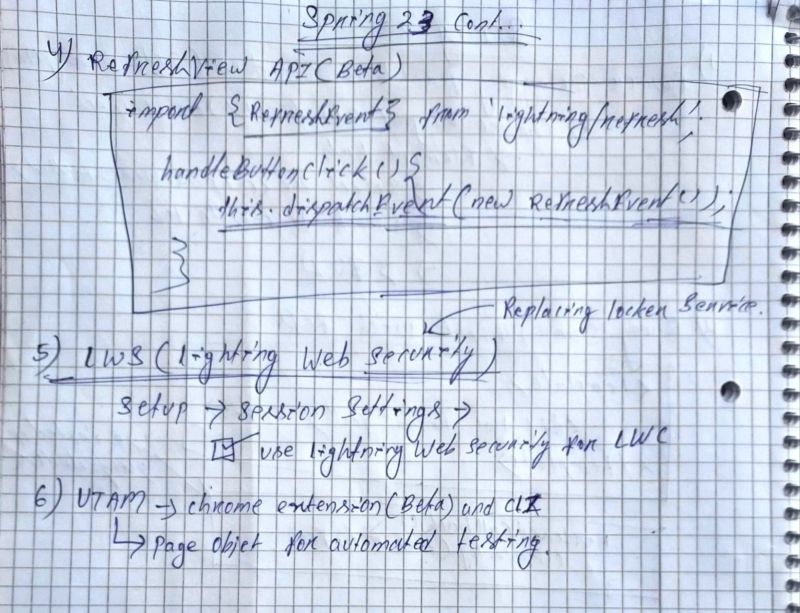 Spring 23 Cont...
4) RefreshView API (Beta)
import {RefreshEvent} from 'lightning/refresh';
handleButtonClick() {
this.dispatchEvent(new RefreshEvent());
}
Replacing locker Service.
5) LWS (Lighting Web Security)
Setup → Session Settings →
☑ use lightning Web security for LWC
6) UTAM → chrome extension (Beta) and CLI
↳ page objet for automated testing.